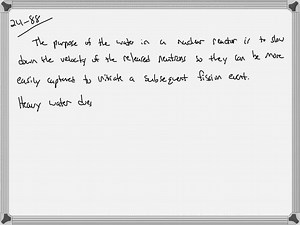 24-88
The purpose of the water in a nuclear reactor is to slow
down the velocity of the released neutrons so they can be more
easily captured to initiate a subsequent fission event.
Heavy water does